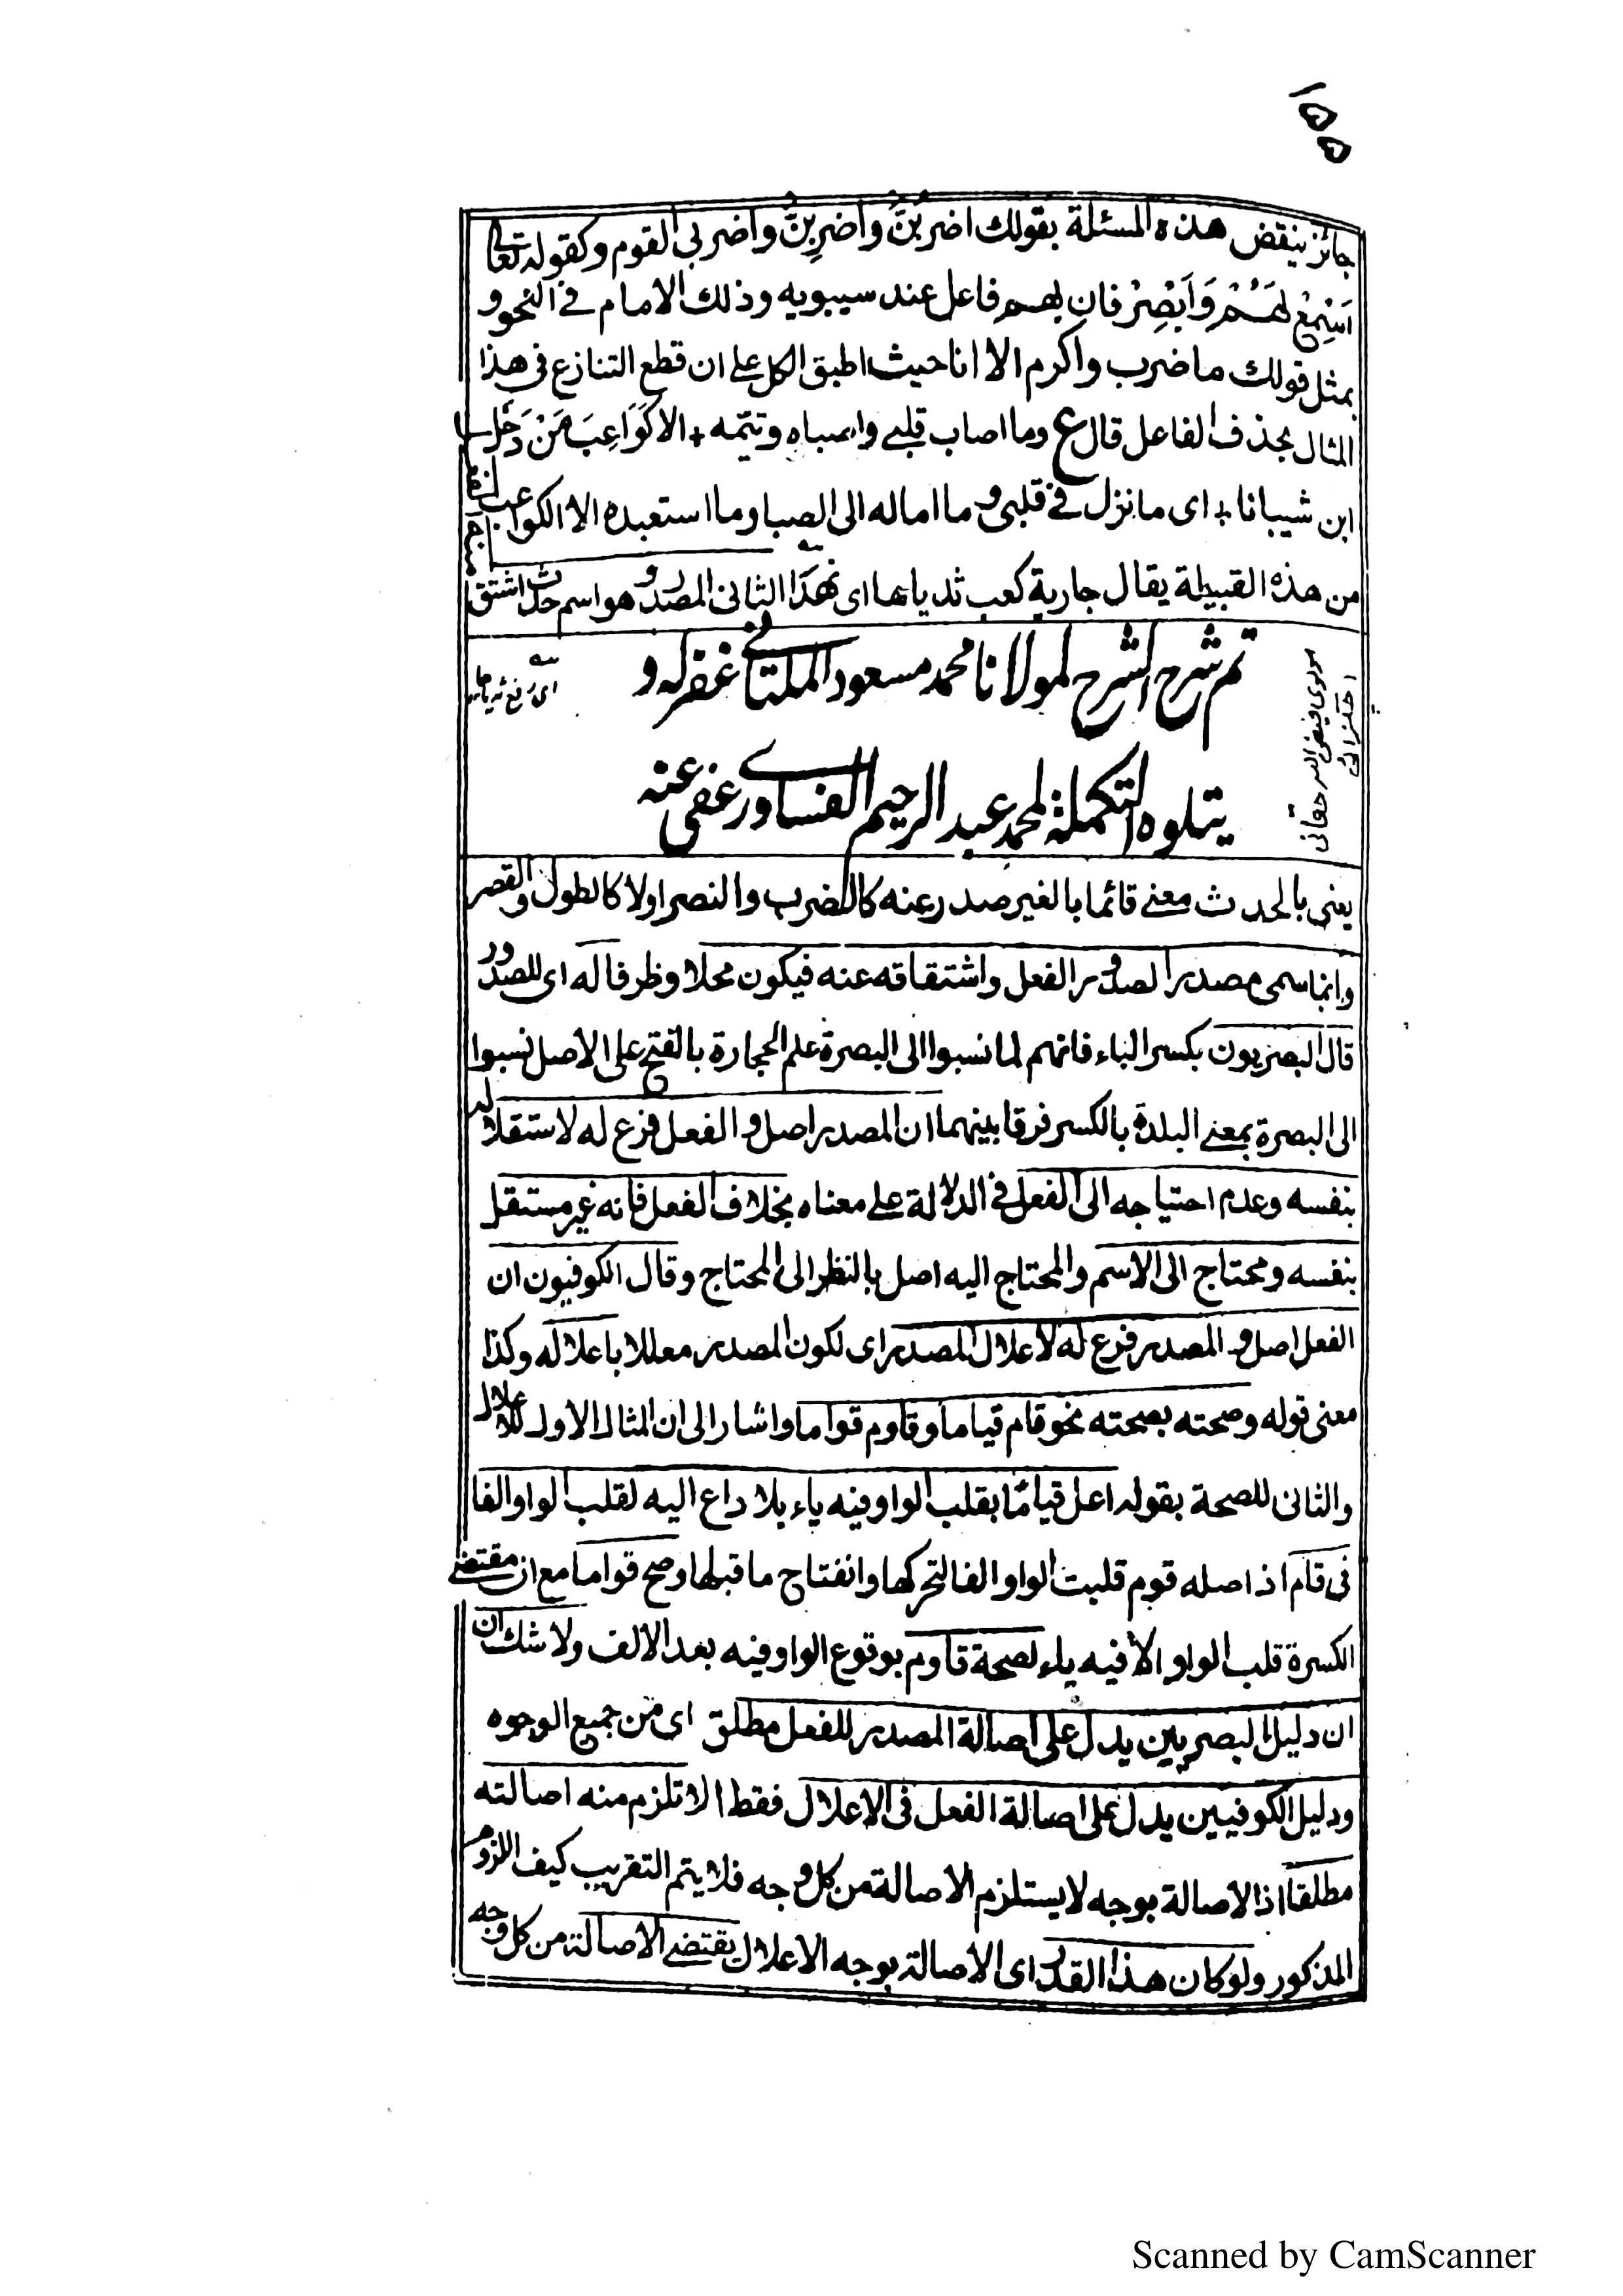 ١٥٥
جائز ينقض هذه المسئلة بقولك اضربُنَّ واضرِبِنَّ واضربى القوم وكقوله تعالى
اَسْمِعْ بِهِمْ وَاَبْصِرْ فان بهم فاعل عند سيبويه وذلك الامام فى النحو و
بمثل قولك ما ضرب واكرم الا انا حيث اطبق الكل على ان قطع التنازع فى هذا
المثال بحذف الفاعل قال ع وما اصاب قلبى و وتيّمه + الا كَوَاعِبَ مَنْ
ابن شيبانا + اى ما نزل فى قلبى وما اماله الى الصبا وما استعبده الا الكواعب
من هذه القبيلة يقال جارية كعب ثدياها اى نهدا الثانى المصدر وهو اسم حدث اشتق
تم شرح الشرح لمولانا محمد مسعود الملتانى غفر له و
يتلوه التكملة لمحمد عبد الرحيم عفى عنه
مولوى فيض الله حقانى
يعنى بالحدث معنى قائما بالغير صدر عنه كالضرب والنصر اولا كالطول والقصر
وانما سمى مصدرا لصدور الفعل واشتقاقه عنه فيكون محلا وظرفا له اى للصدور
قال البصريون بكسر الباء فانهم لما نسبوا الى البصرة علم الحجارة بالفتح على الاصل نسبوا
الى البصرة بمعنى البلدة بالكسر فرقا بينهما ان المصدر اصل و الفعل فرع له لاستقلاله
بنفسه وعدم احتياجه الى الفعل فى الدلالة على معناه بخلاف الفعل فانه غير مستقل
بنفسه ومحتاج الى الاسم والمحتاج اليه اصل بالنظر الى المحتاج وقال الكوفيون ان
الفعل اصل و المصدر فرع له لاعلال المصدر اى لكون المصدر معللا باعلاله وكذا
معنى قوله وصحته بصحته نحو قام قياما وقاوم قواما واشار الى ان المثال الاول للاعلال
والثانى للصحة بقوله اعل قياما بقلب الواو فيه ياء بلا داع اليه لقلب الواو الفا
فى قام اذ اصله قوم قلبت الواو الفا لتحركها وانفتاح ما قبلها وصح قواما مع ان مقتضى
الكسرة قلب الواو فيه ياء لصحة قاوم بوقوع الواو فيه بعد الالف ولا شك ان
ان دليل البصريين يدل على اصالة المصدر للفعل مطلق اى من جميع الوجوه
ودليل الكوفيين يدل على اصالة الفعل فى الاعلال فقط الا تلزم منه اصالته
مطلقا اذ الاصالة بوجه لا يستلزم الاصالة من كل وجه فلا يتم التقريب كيف اللزوم
المذكور ولو كان هذا القدر اى الاصالة بوجه الاعلال يقتضى الاصالة من كل وجه
Scanned by CamScanner